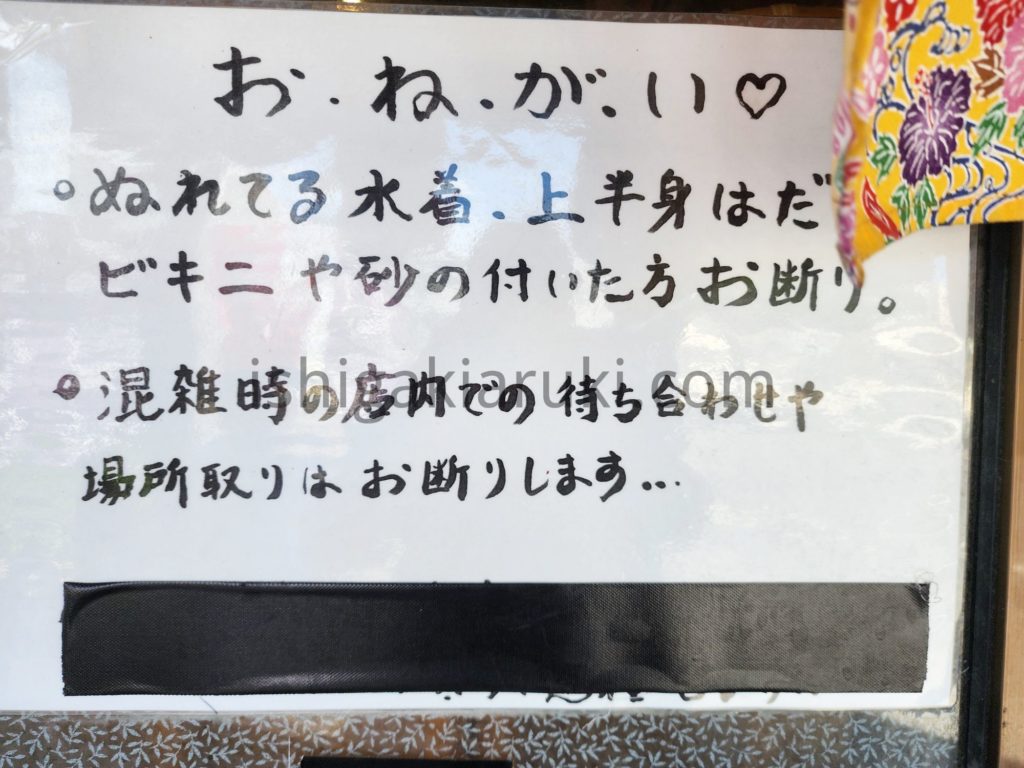 お.ね.が.い♡
。ぬれてる水着、上半身はだ
ビキニや砂の付いた方お断り。
。混雑時の店内での待ち合わせや
場所取りはお断りします...
ishigakiaruki.com